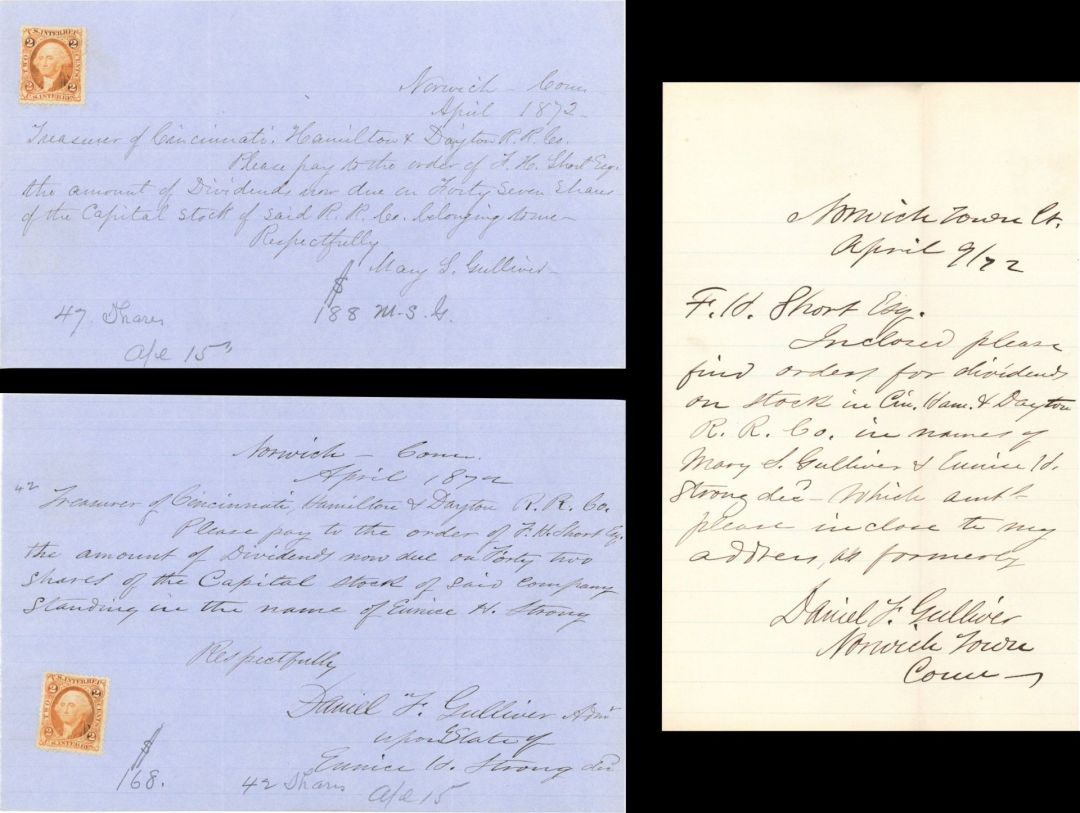 U.S. INTER. REV.
2 2
TWO CENTS
2 2
U.S. INTER. REV.
Norwich Conn
April 1872
Treasurer of Cincinnati, Hamilton & Dayton R. R. Co.
Please pay to the order of F. H. Short Esq.
the amount of Dividends now due on Forty Seven Shares
of the Capital stock of said R. R. Co. belonging to me—
Respectfully
Mary S. Gulliver—
$
47 Shares 188 M. S. G.
Apl 15
Norwich — Conn.
April 1872
42
Treasurer of Cincinnati, Hamilton & Dayton R. R. Co.
Please pay to the order of F. H. Short Esq.
the amount of Dividends now due on Forty two
shares of the Capital stock of said company
standing in the name of Eunice H. Strong
Respectfully
Daniel F. Gulliver Admr
upon Estate of
Eunice H. Strong decd
U.S. INTER. REV.
2 2
TWO CENTS
2 2
U.S. INTER. REV.
$
168. 42 Shares Apl 15
Norwich Town Ct.
April 9/72
F. H. Short Esq.
Inclosed please
find orders for dividends
on stock in Cin. Ham. & Dayton
R. R. Co. in names of
Mary S. Gulliver & Eunice H.
Strong decd — Which amt
please inclose to my
address, as formerly
Daniel F. Gulliver
Norwich Town
Conn—